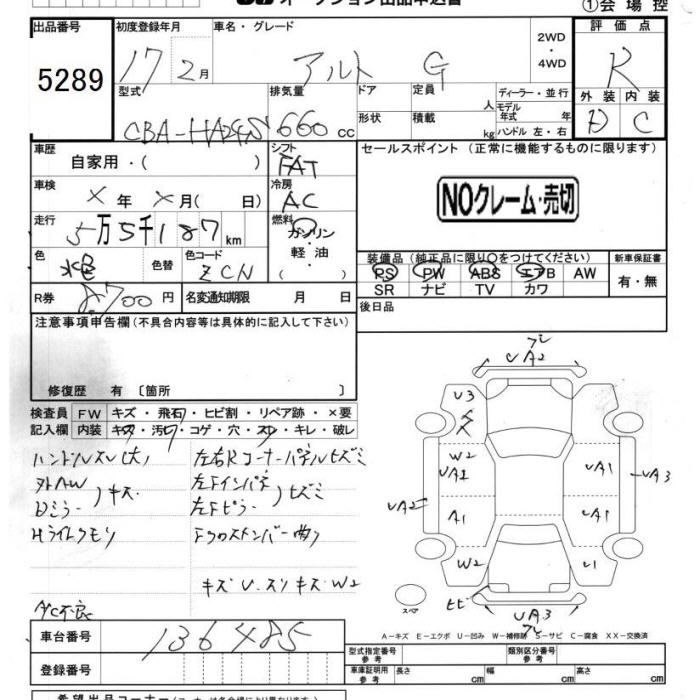 オークション出品申込書
①会場控
出品番号 初度登録年月 車名・グレード 評価点
5289 17 2月 アルト G 2WD・4WD R
型式 排気量 ドア 定員 人 ディーラー・並行 外装 内装
CBA-HA24S 660cc 形状 積載 kg モデル年式 年 D C
ハンドル 左・右
車歴 シフト セールスポイント (正常に機能するものに限ります)
自家用・( ) FAT
車検 冷房
×年 ×月( 日) AC NOクレーム・売切
走行 燃料
5万5千187km ガソリン・軽油・
色 色替 色コード 装備品 (純正品に限り○をつけてください) 新車保証書
ZCN PS PW ABS エアB AW 有・無
SR ナビ TV カワ
R券 8,700円 名変通知期限 月 日 後日品
注意事項申告欄 (不具合内容等は具体的に記入して下さい)
修復歴 有 〔箇所 〕
検査員 FW キズ・飛石・ヒビ割・リペア跡・×要
記入欄 内装 キズ・汚レ・コゲ・穴・スレ・キレ・破レ
ハンドルスレ(大) 左右Rコーナーパネルヒズミ
外AW 左Fインパネ
Dミラー )キズ 左Fピラー )ヒズミ
Hライトクモリ Fクロスメンバー曲り
キズ U・スリキズ・W2
A/C不良
UA2
U3
W2
UA2
UA1
UA1
UA3
A1
UA1
W2
U1
ヒビ
UA3
スペア
A－キズ E－エクボ U－凹み W－補修跡 S－サビ C－腐食 XX－交換済
車台番号 136485
型式指定番号 参考 類別区分番号 参考
登録番号 車庫証明用 参考 長さ cm 幅 cm 高さ cm
希望出品コーナー